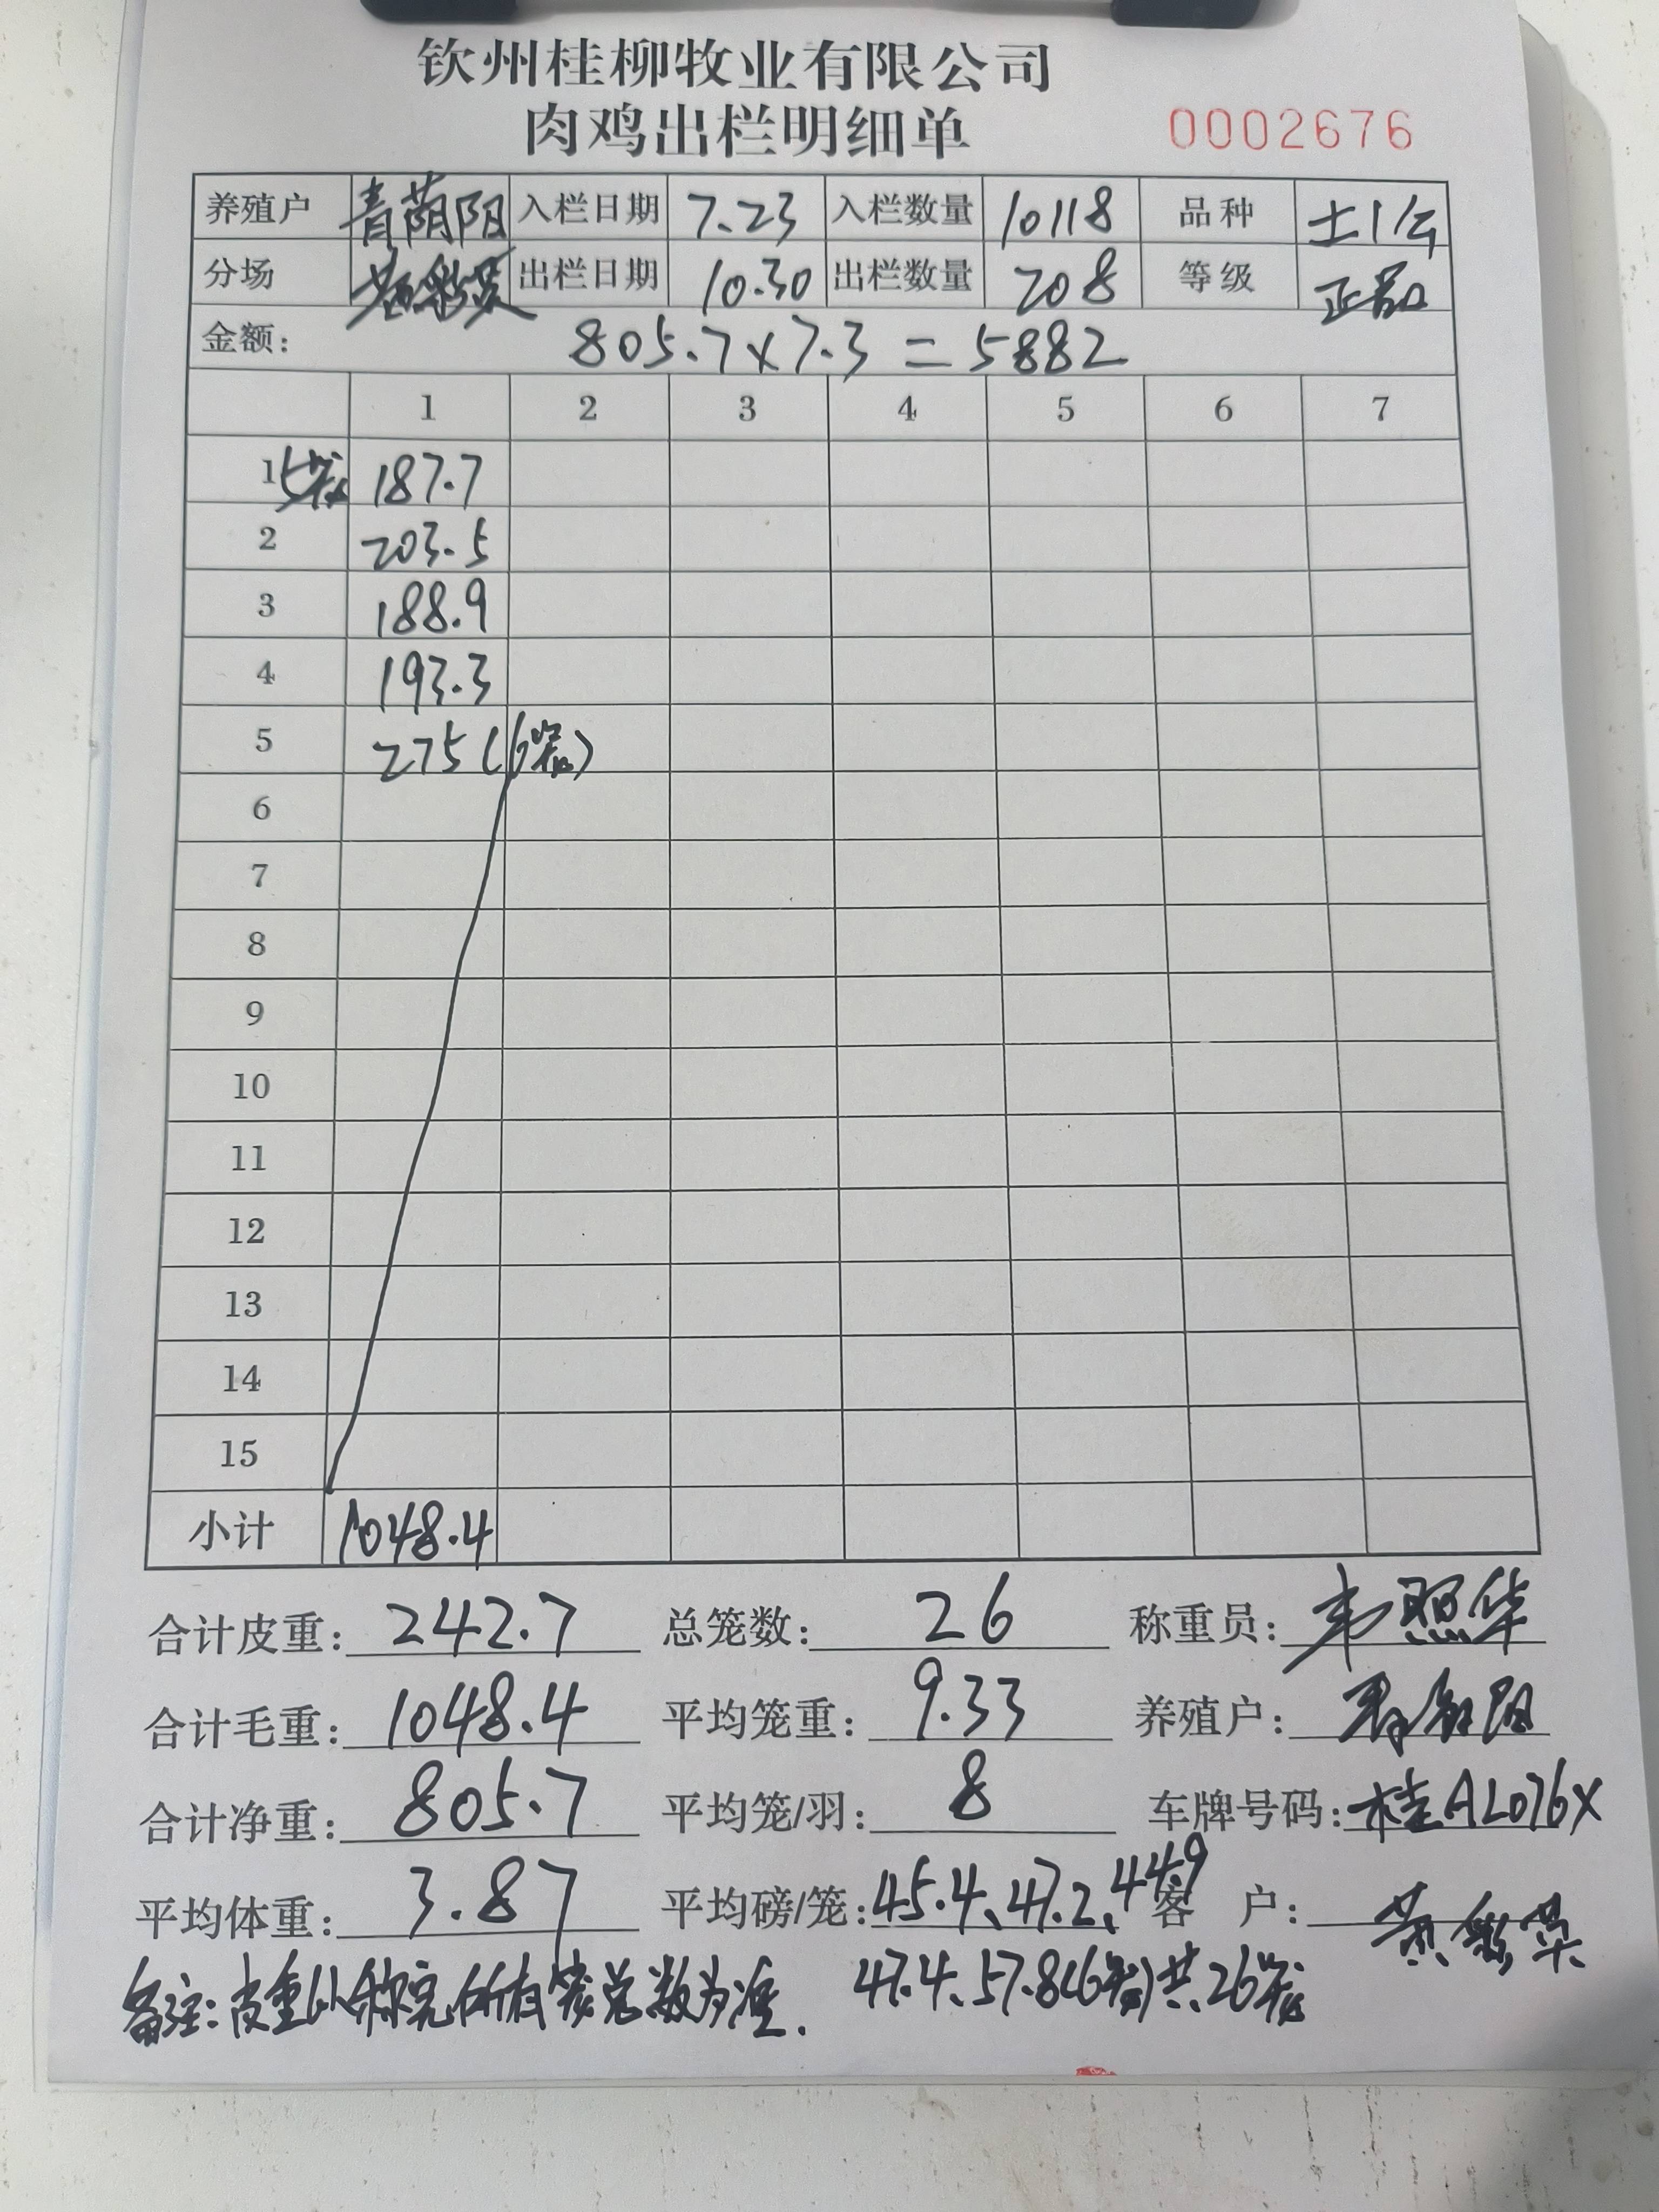 钦州桂柳牧业有限公司
肉鸡出栏明细单 0002676
养殖户 青荫阳 入栏日期 7.23 入栏数量 10118 品种 土1公
分场 出栏日期 10.30 出栏数量 208 等级 正品
金额: 805.7×7.3=5882
1 2 3 4 5 6 7
1 5笼 187.7
2 203.5
3 188.9
4 193.3
5 275(6笼)
6
7
8
9
10
11
12
13
14
15
小计 1048.4
合计皮重: 242.7 总笼数: 26 称重员: 韦照华
合计毛重: 1048.4 平均笼重: 9.33 养殖户:
合计净重: 805.7 平均笼/羽: 8 车牌号码: 桂AL076X
平均体重: 3.87 平均磅/笼: 45.4、47.2、44.9 客 户: 黄
备注:皮重以称完所有笼总数为准. 47.4、57.8(6笼)共26笼